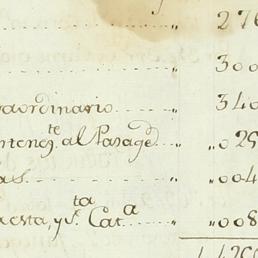 276
300
raordinario 340
ntenc.te al Pasage 029
as 004
uesta, y s.ta Cat.a 008